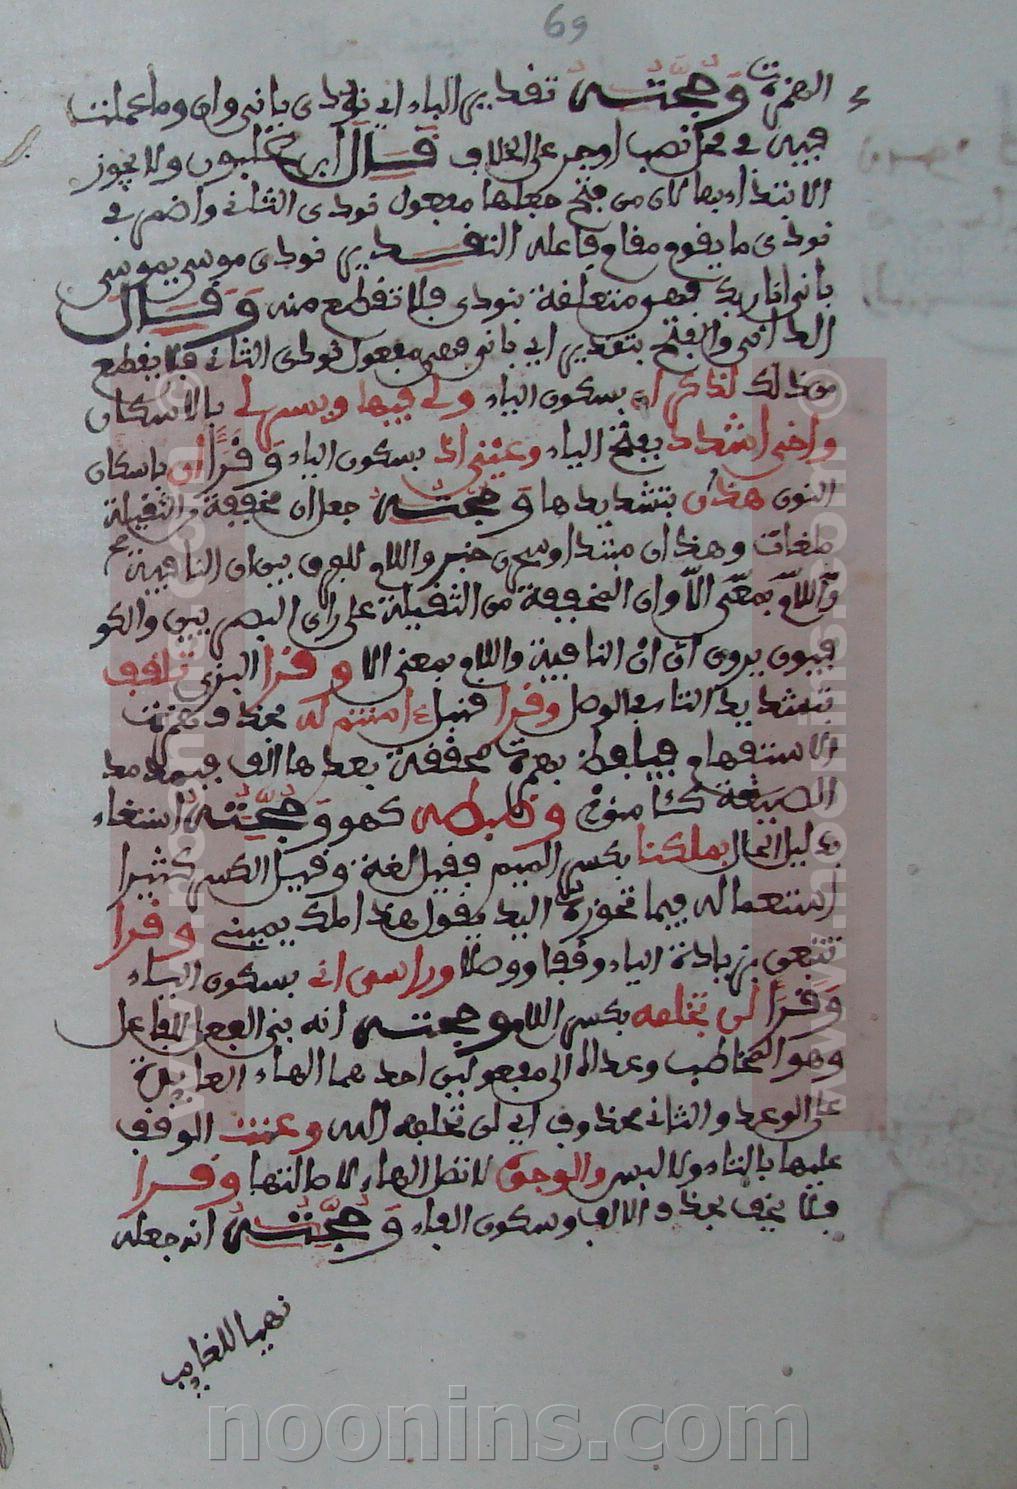 69
الهمزة وحجته تقدير الباء اي نودي باني وان وما عملت
فيه في محل نصب او جر على الخلاف قال ابن غلبون ولا يجوز
الابتداء بها لان من فتح جعلها مفعول نودي الثاني واضمر في
نودي ما يقوم مقام فاعله التقدير نودي موسى يموسى
باني انا ربك فهو متعلقة بنودي فلا تقطع منه وقال
الداني والفتح بتقدير اي باني فهي مفعول نودي الثاني فلا يقطع
من ذلك لذكري ان بسكون الياء ولي فيها ويسر لي بالاسكان
واخي اشدد بفتح الياء وعيني اذ بسكون الياء وقرا ان باسكان
النون هذن بتشديدها وحجته جعل ان مخففة والثقيلة
ملغات وهذان مبتدا وسحرن خبر واللام للفرق بين ان النافية
واللام بمعنى الا وان المخففة من الثقيلة على راي البصريين والكو
فيون يرون ان ان النافية واللام بمعنى الا وقرا البزي تلقف
بتشديد التاء في الوصل وقرا قنبل ءامنتم له بحذف همزت
الاستفهام فيلفظ بهمزة محققة بعدها الف فيمد مد
الصيغة كـءامنوا وكلبطه كهو وحجته استغناء
بدليل الحال بملكنا بكسر الميم فقيل لغة وقيل الكسر كثيرا
استعماله فيما تحوزه اليد يقول هذا ملك يميني وقرا
تتبعن بزيادة الياء وقفا ووصلا وراسي اني بسكون الياء
وقرا لن تخلفه بكسر اللام وحجته انه بني الفعل للفاعل
وهو المخاطب وعداه الى مفعولين احدهما الهاء العايدة
على الوعد والثاني محذوف اي لن تخلفه الله وعنت الوقف
عليها بالتاء ولا لبس والوجه لا تظل الهاء لاطالتها وقرا
فلا يخف بحذف الالف وسكون الفاء وحجته انه جعله
نهيا للغايب
www.noonins.com ©
www.noonins.com ©
noonins.com